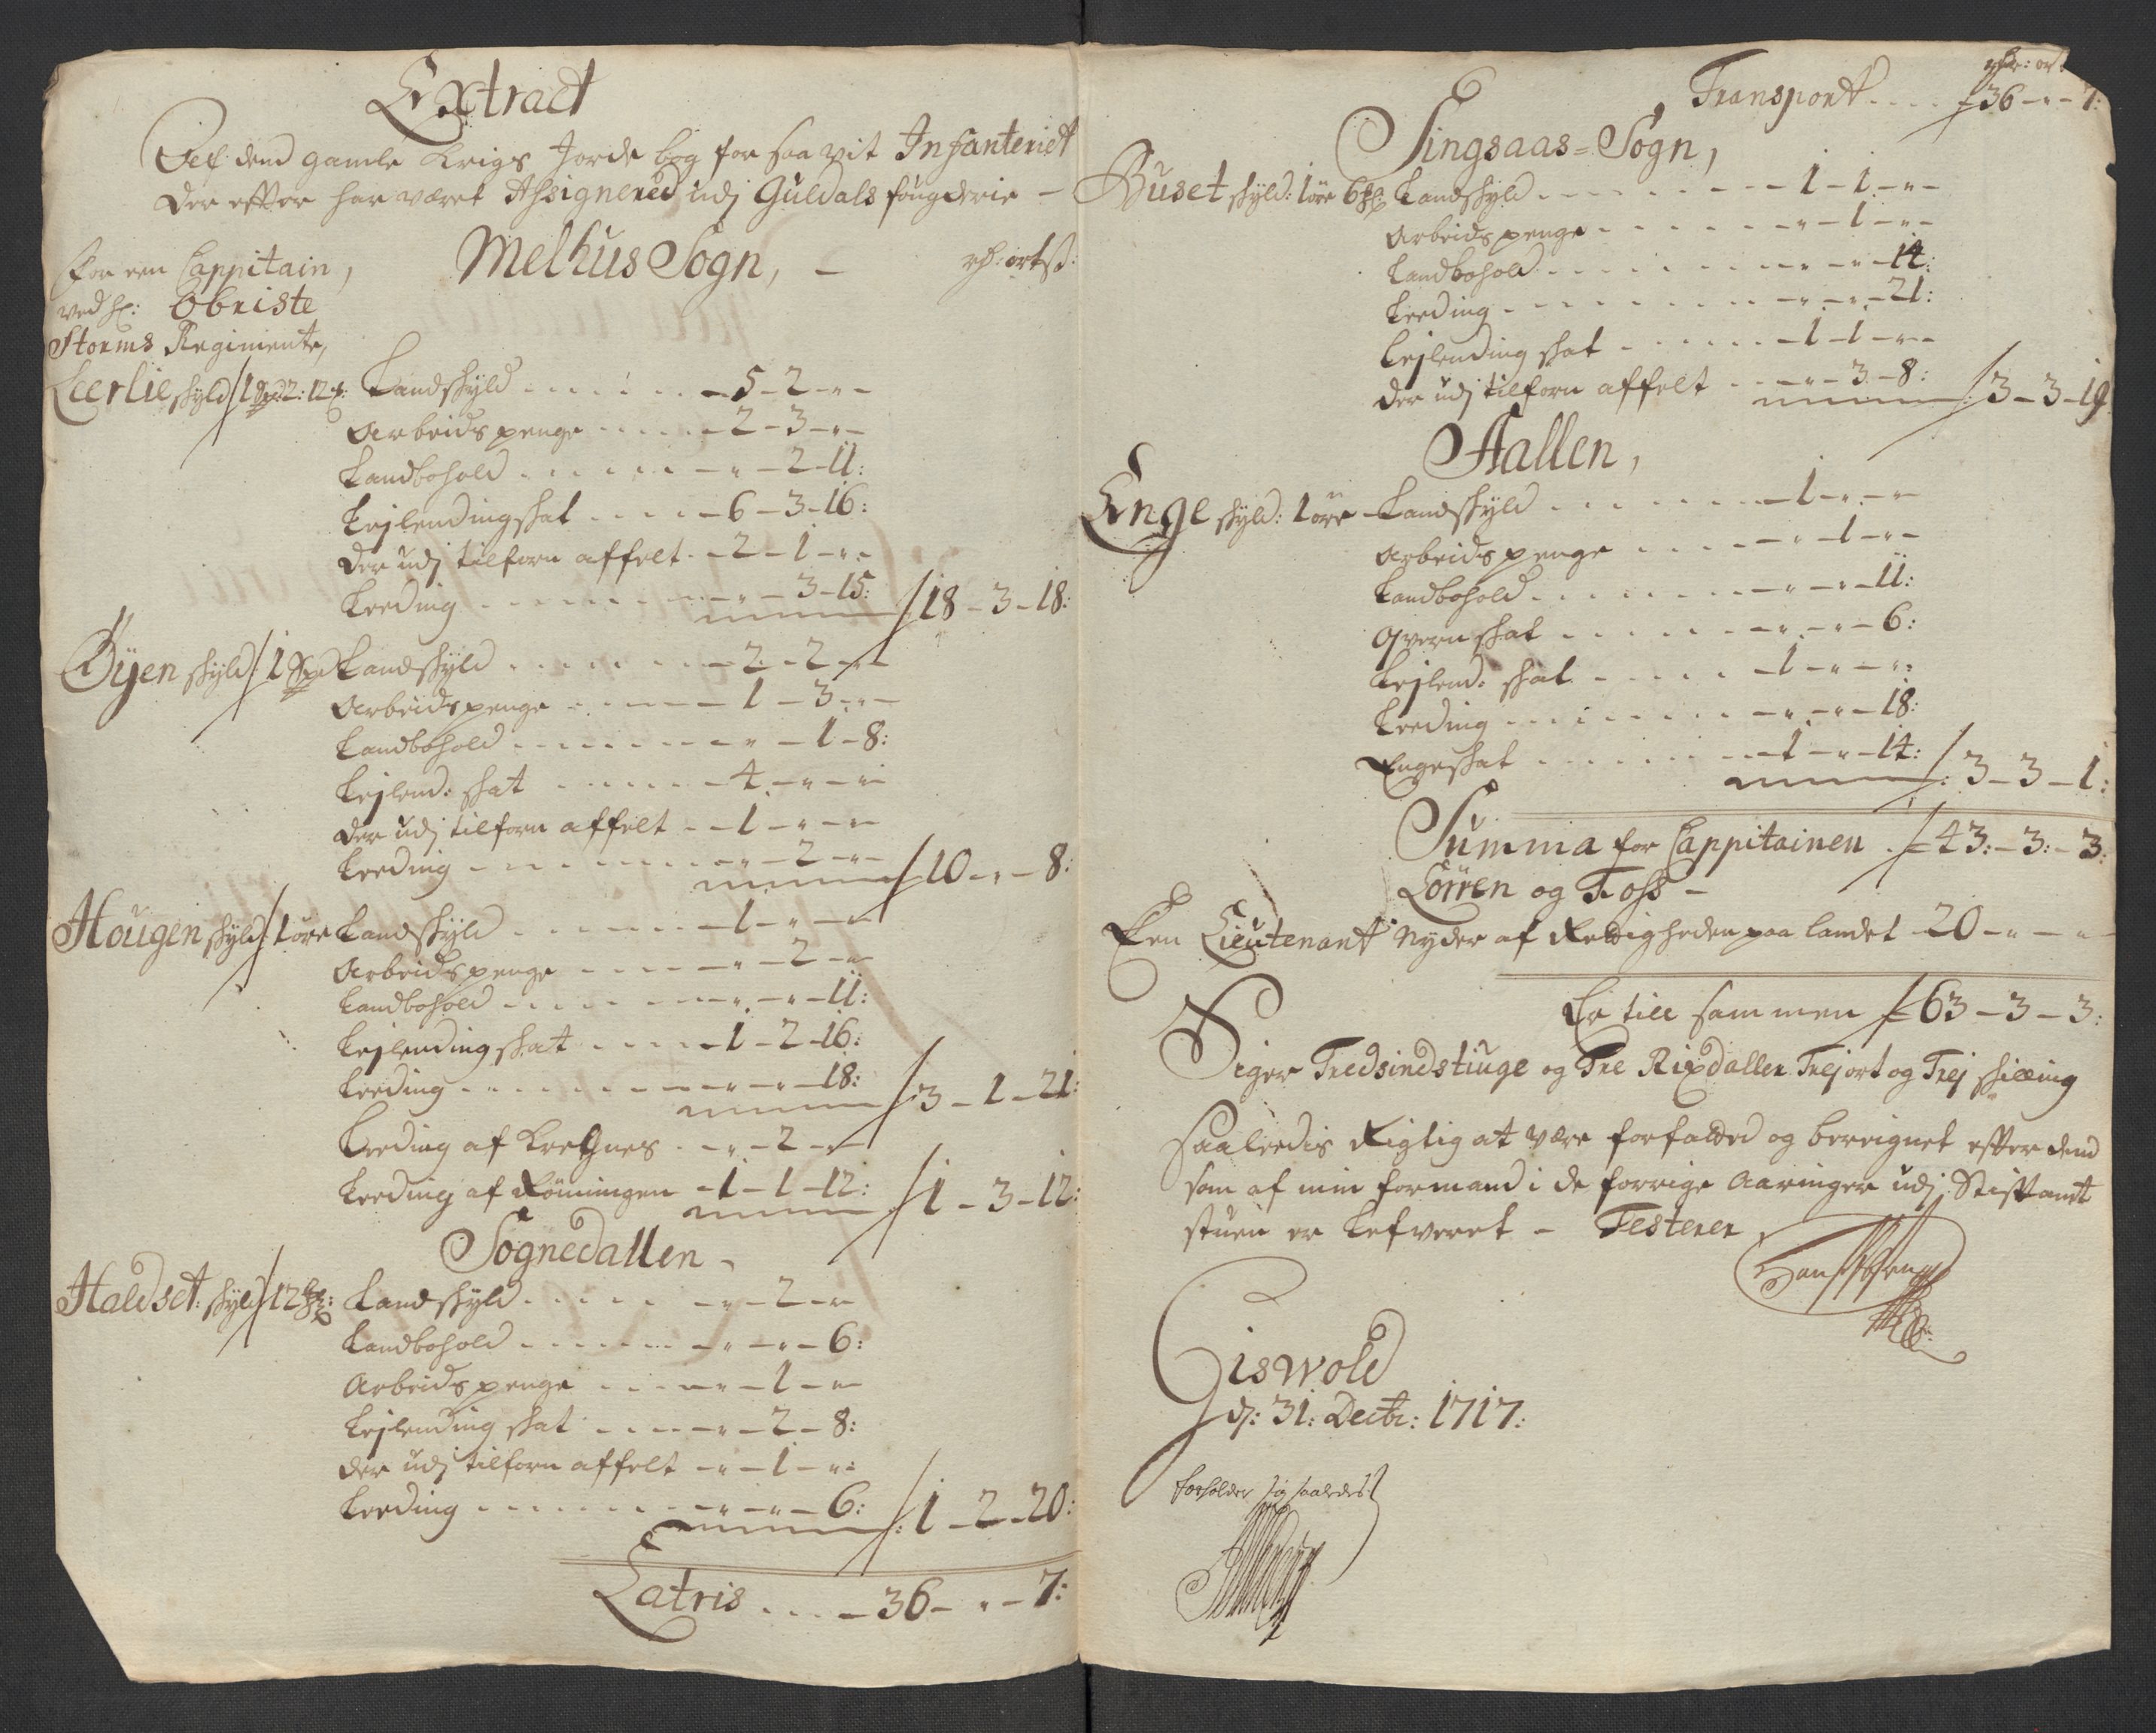 Extract
Aff dend gamle Krigs Jorde bog for saa vit Infanteriet
der effter har været Assignered udj Guldals fougderie –
For een Cappitain,
ved H: Obriste
Storms Regimente,
Melhus Sogn, –
rd: ort ß:
Leerlie skyld 1 Spd 2: 12 : Landskyld . . . . – 5 – 2 – " –
Arbeidspenge . . . . – 2 – 3 – " –
Landbohold . . . . – " – 2 – 11:
Lejlendingskat . . . . – 6 – 3 – 16:
der udj tilforn affelt – 2 – 1 – " –
Leeding . . . . – " – 3 – 15: / 18 – 3 – 18:
Øyen skyld 1 Spd Landskyld . . . . – 2 – 2 – " –
Arbeidspenge . . . . – 1 – 3 – " –
Landbohold . . . . – " – 1 – 8:
Lejlend: skat . . . . – 4 – " – "
der udj tilforn affelt – 1 – " – " –
Leeding . . . . – " – 2 – " – / 10 – " – 8:
Hougen skyld: 1 øre Landskyld . . . . – 1 – " – " –
Arbeidspenge . . . . – " – 2 – " –
Landbohold . . . . – " – " – 11:
Lejlendingskat . . . . – 1 – 2 – 16:
Leeding . . . . – " – " – 18: / 3 – 1 – 21:
Leeding af Kregnes . – " – 2 – " –
Leeding af Rønningen – 1 – 1 – 12: / 1 – 3 – 12:
Sognedallen –
Haldset: skyld 12 : Landskyld . . . . – " – 2 – " –
Landbohold . . . . – " – " – 6:
Arbeidspenge . . . . – " – 1 – " –
Lejlending skat . . . . – " – 2 – 8:
der udj tilforn affelt – " – 1 – " –
Leeding . . . . – " – " – 6: / 1 – 2 – 20:
Latris . . . – 36 – " – 7:
rdr: ort
Transport . . . . 36 – " – 7:
Singsaas = Sogn,
Buset skyld: 1 øre 6 : Landskyld . . . . – 1 – 1 – " –
Arbeidspenge . . . . – " – 1 – " –
Landbohold . . . . – " – " – 14:
Leeding . . . . – " – " – 21:
Lejlending skat . . . . – 1 – 1 – " –
der udj tilforn affelt . . – " – 3 – 8: / 3 – 3 – 19
Aallen,
Enge skyld: 1 øre – Landskyld . . . . – 1 – " – " –
Arbeidspenge . . . . – " – 1 – " –
Landbohold . . . . – " – " – 11:
Qvern skat . . . . – " – " – 6:
Lejlend: skat . . . . – 1 – " – ":
Leeding . . . . – " – " – 18:
Engeskat . . . . – 1 – " – 14: / 3 – 3 – 1:
Summa for Cappitainen . 43: – 3: – 3:
Lorren og Foss –
Een Lieutenant Nyder af Rettigheden paa landet – 20 – " – " –
Er till sammen 63 – 3 – 3:
Siger Tredsindstiuge og Tre Rixdaller Trej ort og Trej skilling
saaledis Rigtig at være forfalded og bereignet effter dend
som af min formand i de forrige Aaringer udj Stiftamt
stuen er Lefveret – Testerer
Giswold
d: 31: Decbr: 1717:
forholder sig saaledes